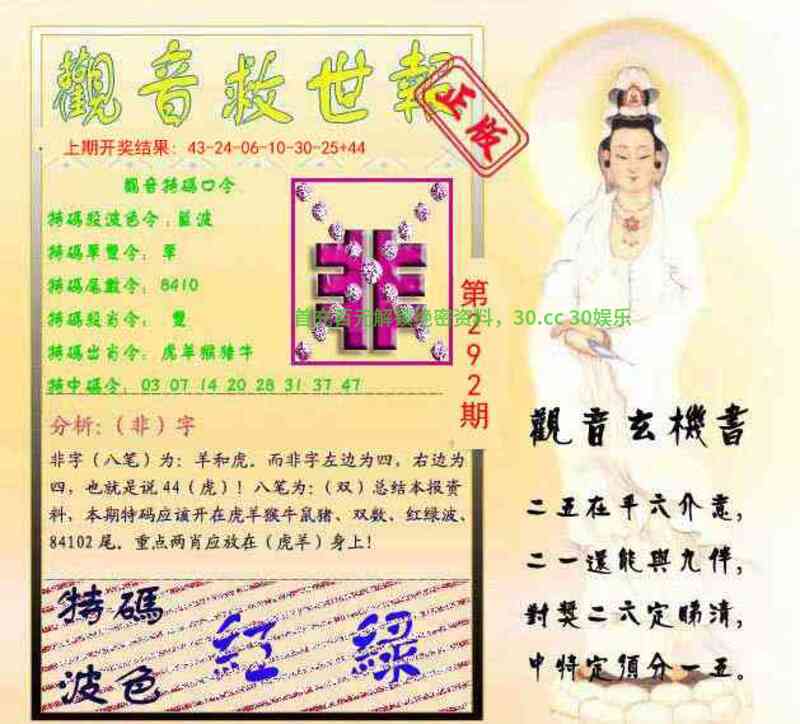 觀音救世報
正版
上期开奖结果：43-24-06-10-30-25+44
觀音特碼口令
特碼殺波色令：藍波
特碼單雙令：單
特碼尾數令：8410
特碼殺肖令：雙
特碼出肖令：虎羊猴豬牛
特中碼令：03 07 14 20 28 31 37 47
非
解 绝密资料，30.cc 30娱乐
第292期
分析：（非）字
非字（八笔）为：羊和虎．而非字左边为四，右边为
四，也就是说44（虎）！八笔为：（双）总结本报资
料，本期特码应该开在虎羊猴牛鼠猪、双数、红绿波、
84102尾．重点两肖应放在（虎羊）身上！
特碼
波色
紅綠
觀音玄機書
二五在平六介意，
二一還能與九伴，
對獎二六定睇清，
中特定須分一五。